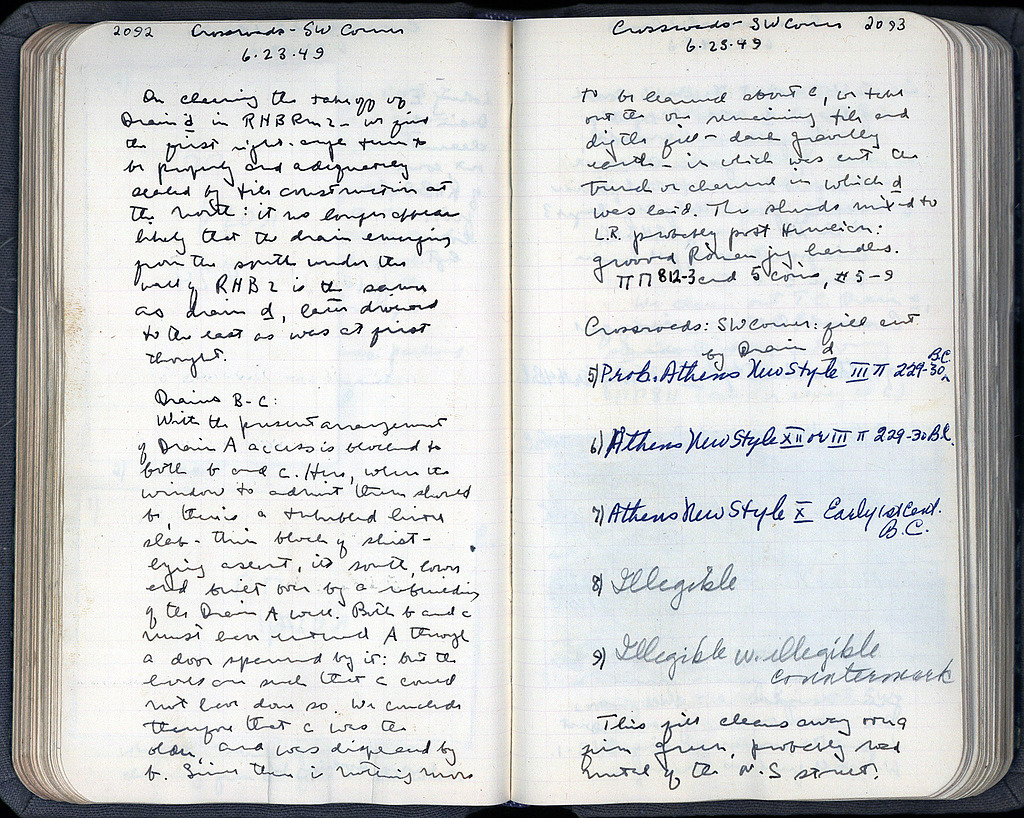 2092 Crossroads - SW Corner
6.23.49
On cleaning the take off of
Drain d in RHB Rm 2 - we find
the first right-angle turn to
be properly and adequately
sealed by tile construction at
the north: it no longer appears
likely that the drain emerging
from the south under the
wall of RHB 2 is the same
as drain d, later diverted
to the east as was at first
thought.
Drains B-C:
With the present arrangement
of Drain A access is blocked to
both b and c. Here, where the
window to admit them should
be, there is a
slab - thin block of shist -
lying aslant, its south, lower
end built over by a rebuilding
of the Drain A wall. Both b and c
must have entered A through
a door spanned by it: but the
levels are such that c could
not have done so. We conclude
therefore that c was the
older, and was displaced by
b. Since there is nothing more
Crossroads - SW Corner 2093
6.23.49
to be learned about c, we take
out the one remaining tile and
dig the fill - dark gravelly
earth - in which was cut the
trench or channel in which d
was laid. The sherds mixed to
L.R. probably post Herulian:
grooved Roman jug handles.
ΠΠ 812-3 and 5 coins, #5-9
Crossroads: SW Corner: fill cut
by Drain d
5) Prob. Athens New Style III π 229-30 B.C.
6) Athens New Style XII or III π 229-30 B.C.
7) Athens New Style X Early 1st Cent.
B.C.
8) Illegible
9) Illegible w. illegible
countermark
This fill cleans away
firm, probably road
metal of the N.S street.